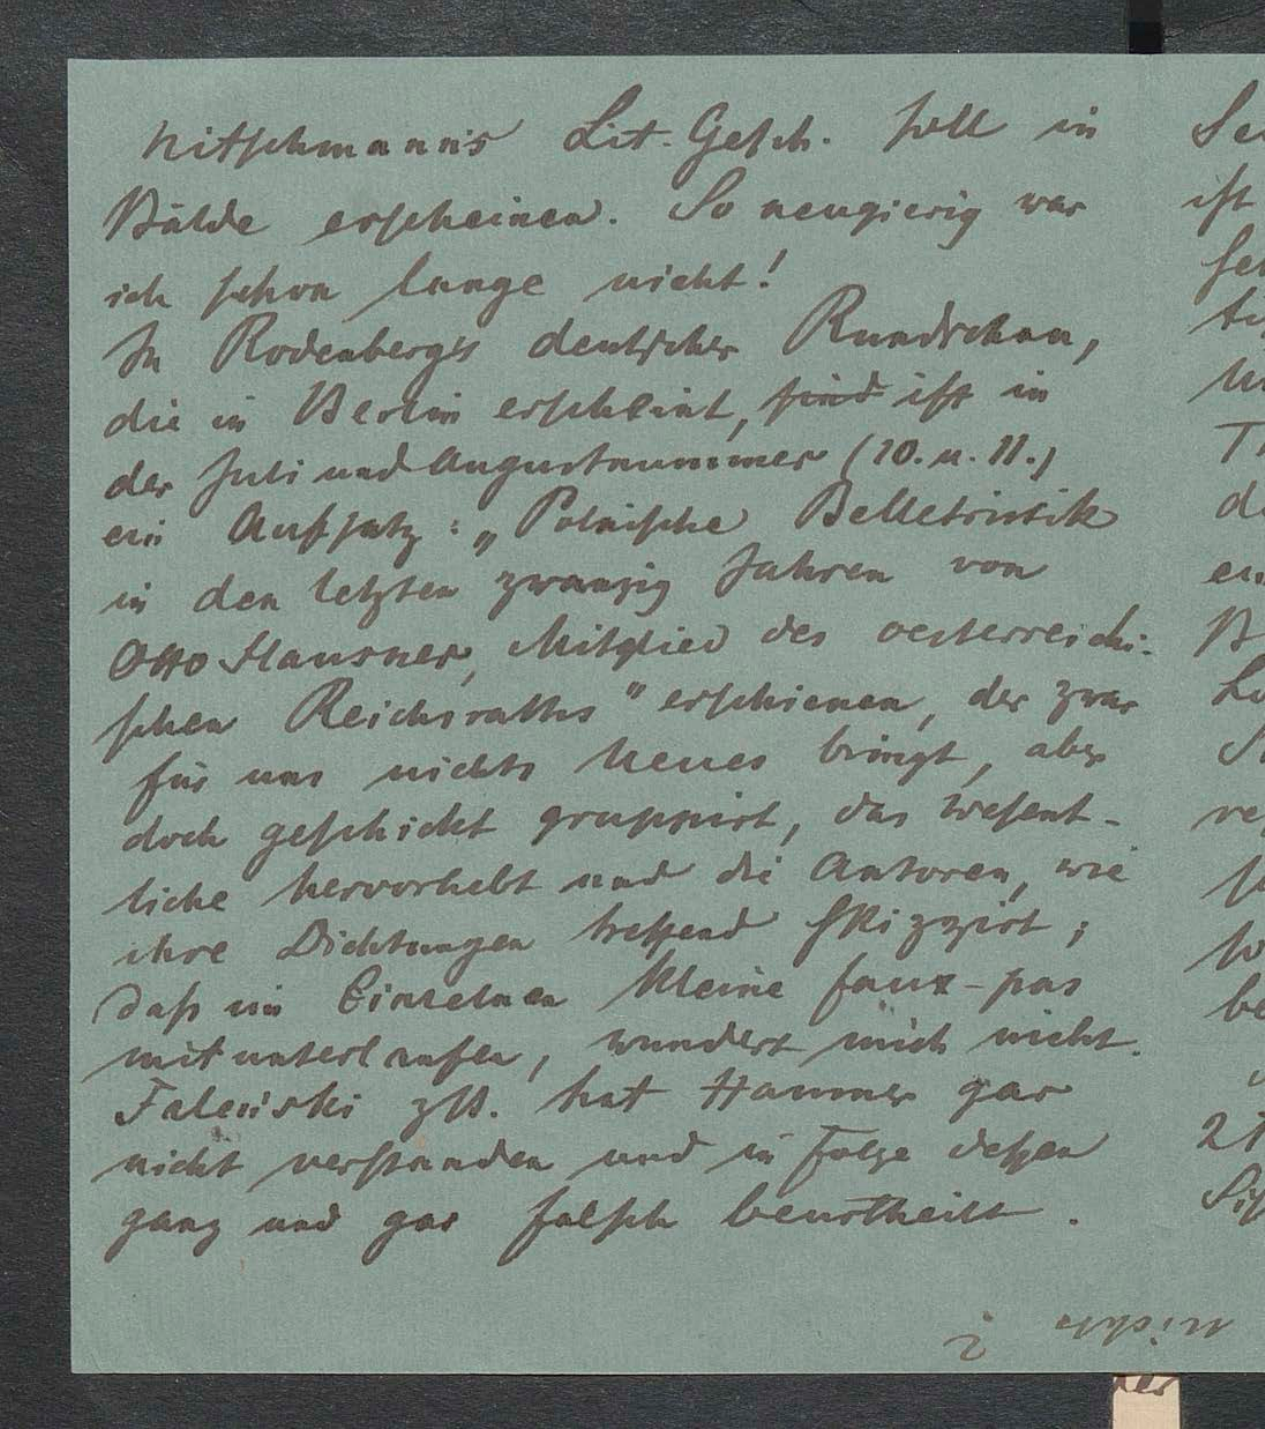 Nitschmann's Lit. Gesch. soll in
Bälde erscheinen. So neugierig war
ich schon lange nicht!
In Rodenberg's deutscher Rundschau,
die in Berlin erscheint, sind ist in
der Juli und Augustnummer (10. u. 11.)
ein Aufsatz: „Polnische Belletristik
in den letzten zwanzig Jahren von
Otto Hausner, Mitglied des oesterreichi-
schen Reichsraths" erschienen, der zwar
für uns nichts Neues bringt, aber
doch geschickt gruppirt, das Wesent-
liche hervorhebt und die Autoren, wie
ihre Dichtungen treffend skizzirt;
daß im Einzelnen kleine faux-pas
mit unterlaufen, wundert mich nicht.
Faleński zB. hat Hausner gar
nicht verstanden und in Folge deßen
ganz und gar falsch beurtheilt.
ist
21
nichts